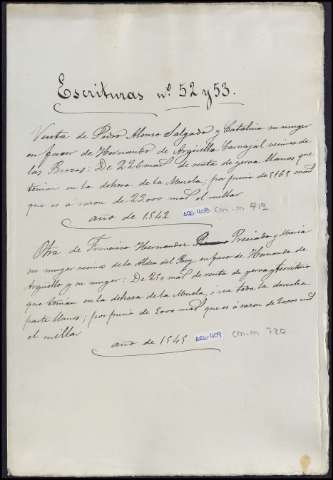 Escrituras nº. 52 y 53.
Venta de Pedro Alonso Salgado y Catalina su muger
en favor de Hernando de Argüello Carvajal vecinos de
las Brozas: De 226 mrs. de renta de yerva llanos que
tenian en la dehesa de la Muela; por precio de
que es á razon de 23000 mrs. el millar
año de 1542
Otra de Hernandez y Maria
su muger vecinos de la Aldea del Rey en favor de Hernando de
Argüello y su muger: De 250 mrs. de renta de yerva
que tenian en la dehesa de la Muela, en toda la
parte llanos; por precio de 5000 mrs. que es á razon de 20000 mrs
el millar
año de 1545